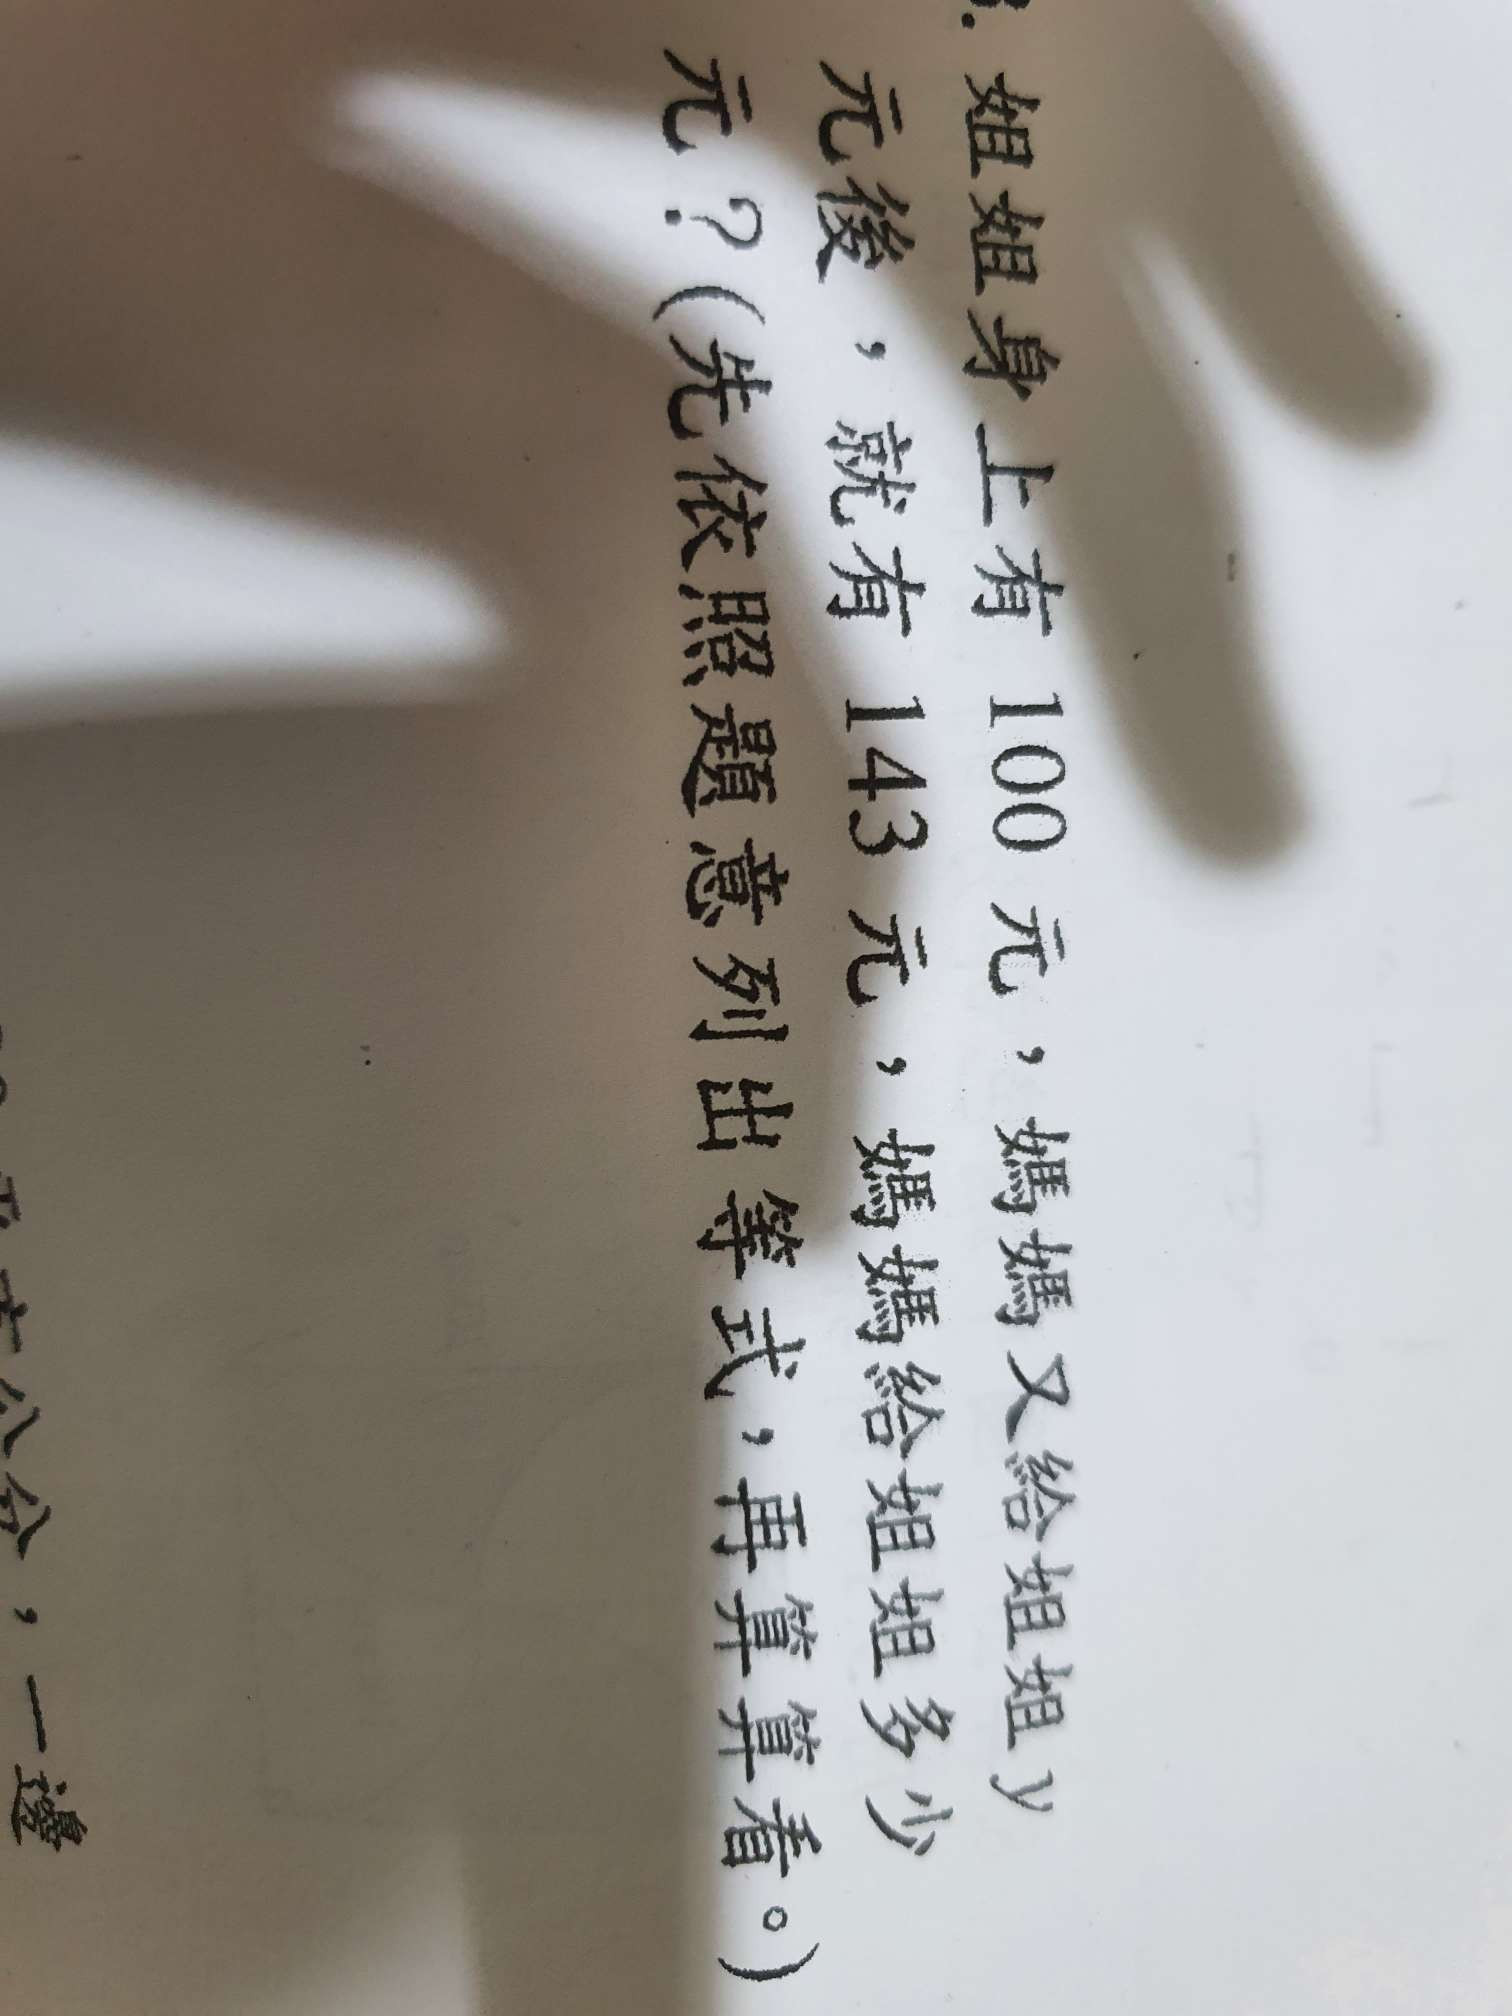 3. 姐姐身上有 100 元，媽媽又給姐姐 y
元後，就有 143 元，媽媽給姐姐多少
元？(先依照題意列出等式，再算算看。)
公分，一邊